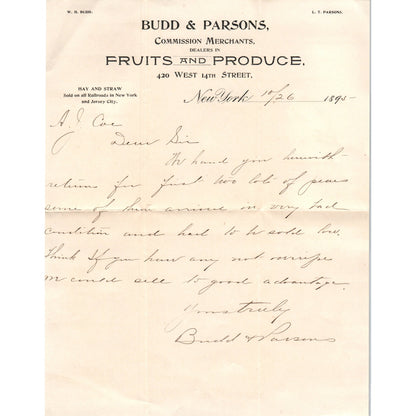 W. H. BUDD. L. T. PARSONS.
BUDD & PARSONS,
COMMISSION MERCHANTS,
DEALERS IN
FRUITS AND PRODUCE,
420 WEST 14TH STREET,
HAY AND STRAW
Sold on all Railroads in New York
and Jersey City.
New York 10/26 1895
A. J. Coe
Dear Sir
We hand you herewith
returns for first two lots of pears
some of them arrived in very bad
condition and had to be sold low.
think If you have any not overripe
we could sell to good advantage.
Yours truly
Budd & Parsons